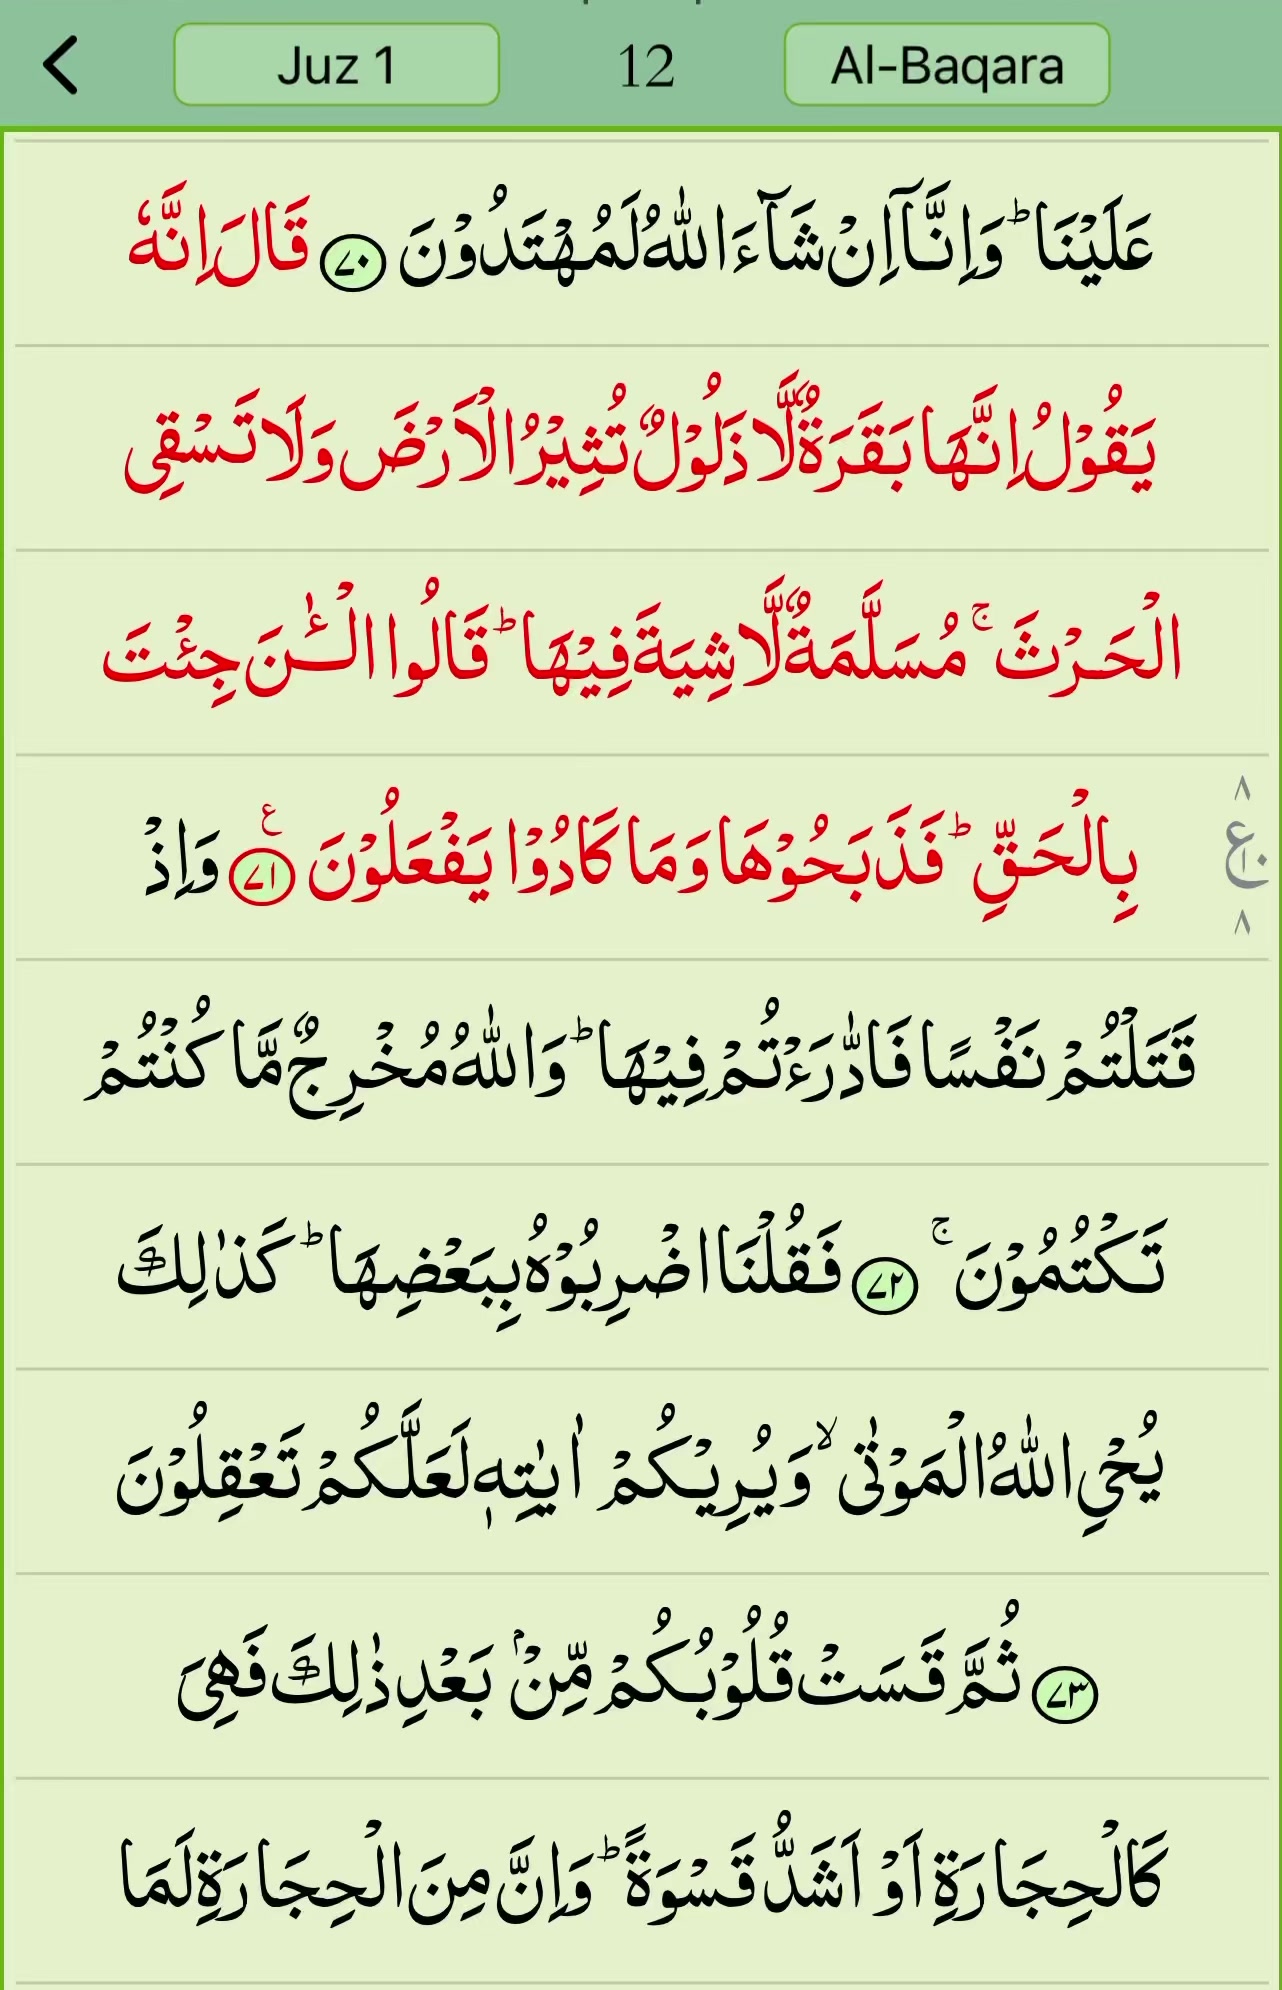 Juz 1 12 Al-Baqara
عَلَيْنَا ؕ وَاِنَّاۤ اِنْ شَآءَ اللّٰهُ لَمُهْتَدُوْنَ ۝۷۰ قَالَ اِنَّهٗ
يَقُوْلُ اِنَّهَا بَقَرَةٌ لَّا ذَلُوْلٌ تُثِيْرُ الْاَرْضَ وَلَا تَسْقِى
الْحَـرْثَ ۚ مُسَلَّمَةٌ لَّا شِيَةَ فِيْهَا ؕ قَالُوا الْـــٰٔنَ جِئْتَ
بِالْحَـقِّ ؕ فَذَبَحُوْهَا وَمَا كَادُوْا يَفْعَلُوْنَ ۝۷۱ ع وَاِذْ
۸ ع ۱۰ ۸
قَتَلْتُمْ نَفْسًا فَادّٰرَءْتُمْ فِيْهَا ؕ وَاللّٰهُ مُخْرِجٌ مَّا كُنْتُمْ
تَكْتُمُوْنَ ۚ ۝۷۲ فَقُلْنَا اضْرِبُوْهُ بِبَعْضِهَا ؕ كَذٰلِكَ
يُحْىِ اللّٰهُ الْمَوْتٰى ۙ وَيُرِيْکُمْ اٰيٰتِهٖ لَعَلَّكُمْ تَعْقِلُوْنَ
۝۷۳ ثُمَّ قَسَتْ قُلُوْبُكُمْ مِّنْۢ بَعْدِ ذٰلِكَ فَهِىَ
كَالْحِجَارَةِ اَوْ اَشَدُّ قَسْوَةً ؕ وَاِنَّ مِنَ الْحِجَارَةِ لَمَا